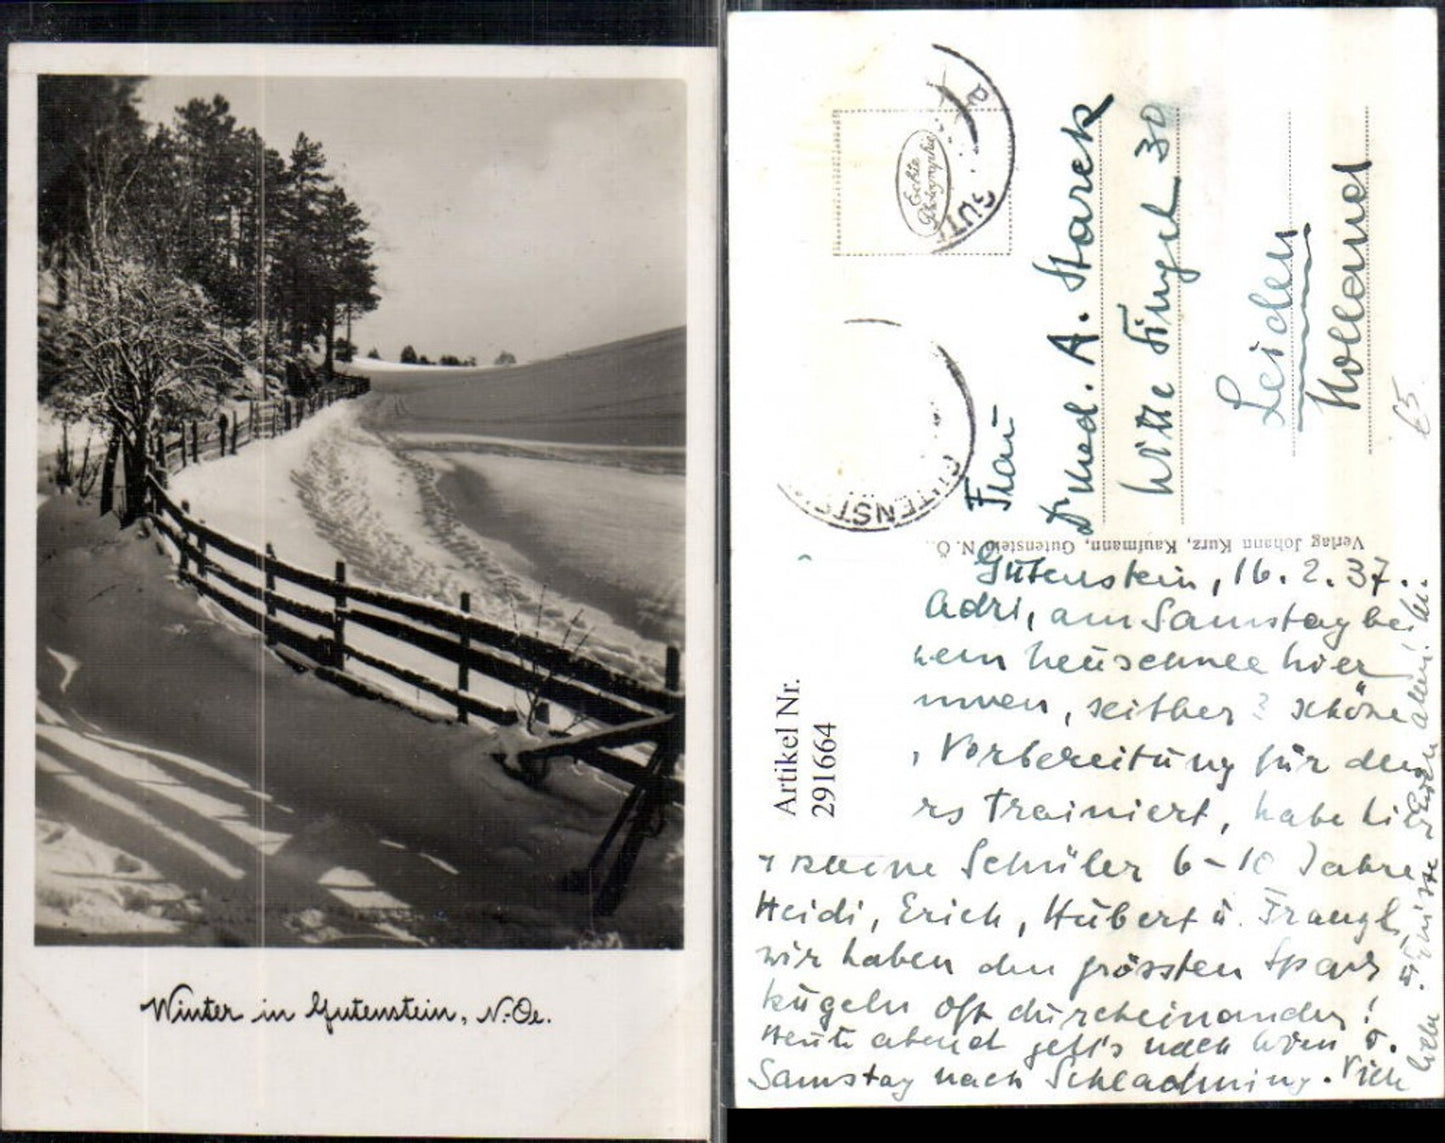 Winter in Gutenstein, N.-Oe.
Echte
Photographie
GUTE
a
GUTENST
Frau
Dr med. A. Starek
Witte Singel 30
Leiden
Holland
Verlag Johann Kurz, Kaufmann, Gutenstein N. Ö.
Artikel Nr.
291664
Gutenstein, 16.2.37.
Adri, am Samstag bei
nem Neuschnee hier
, seither schöne
, Vorbereitung für den
rs trainiert, habe hi
kleine Schüler 6-10 Jahre
Heidi, Erich, Hubert u. Franzl
wir haben den grössten Spass
kugeln oft durcheinander!
Heute abend geht's nach Wien u.
Samstag nach Schladming. Viele
liebe Grüsse Euch allen!